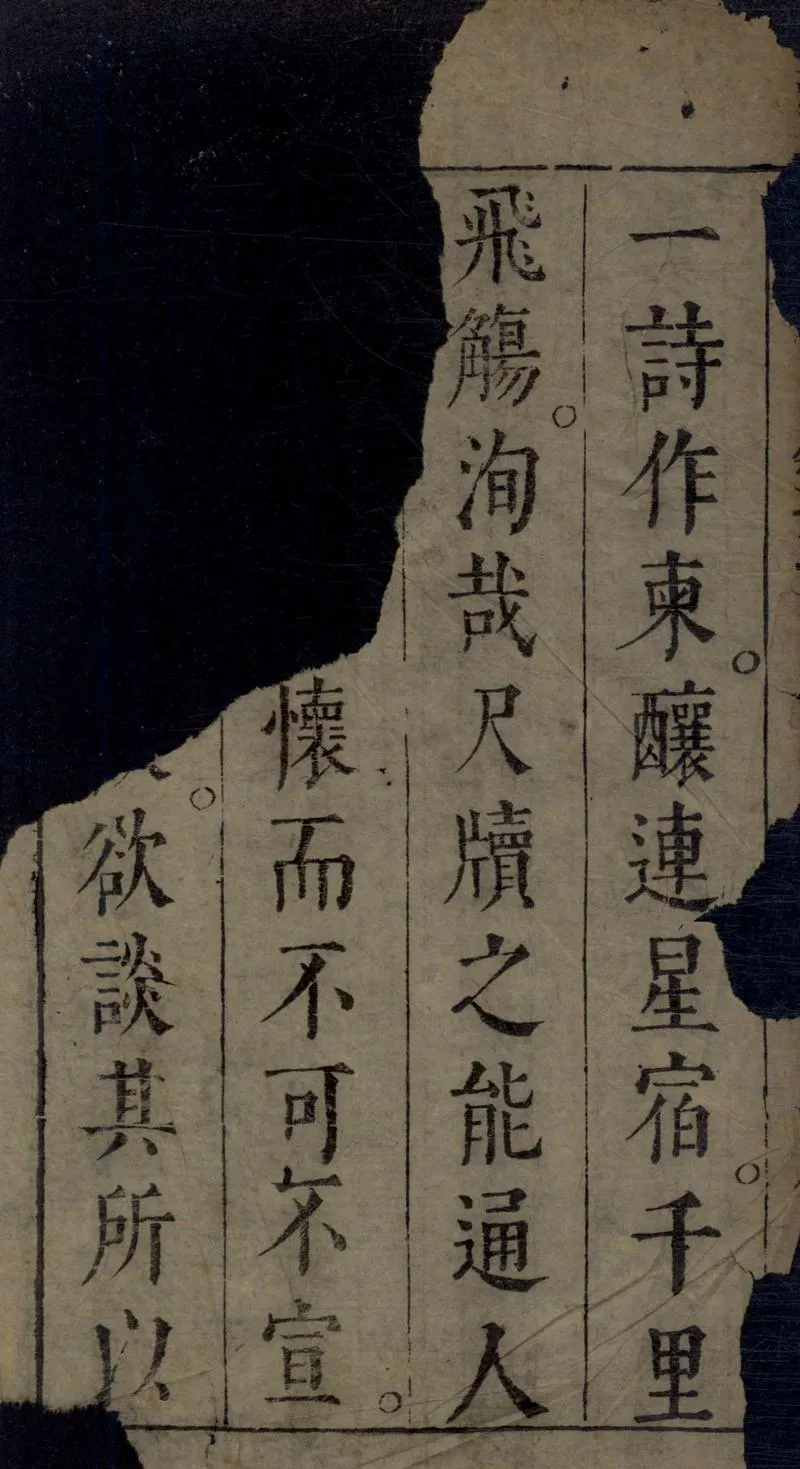 一詩作柬。釀連星宿。千里
飛觴。洵哉尺牘之能通人
懷而不可不宣。
欲談其所以